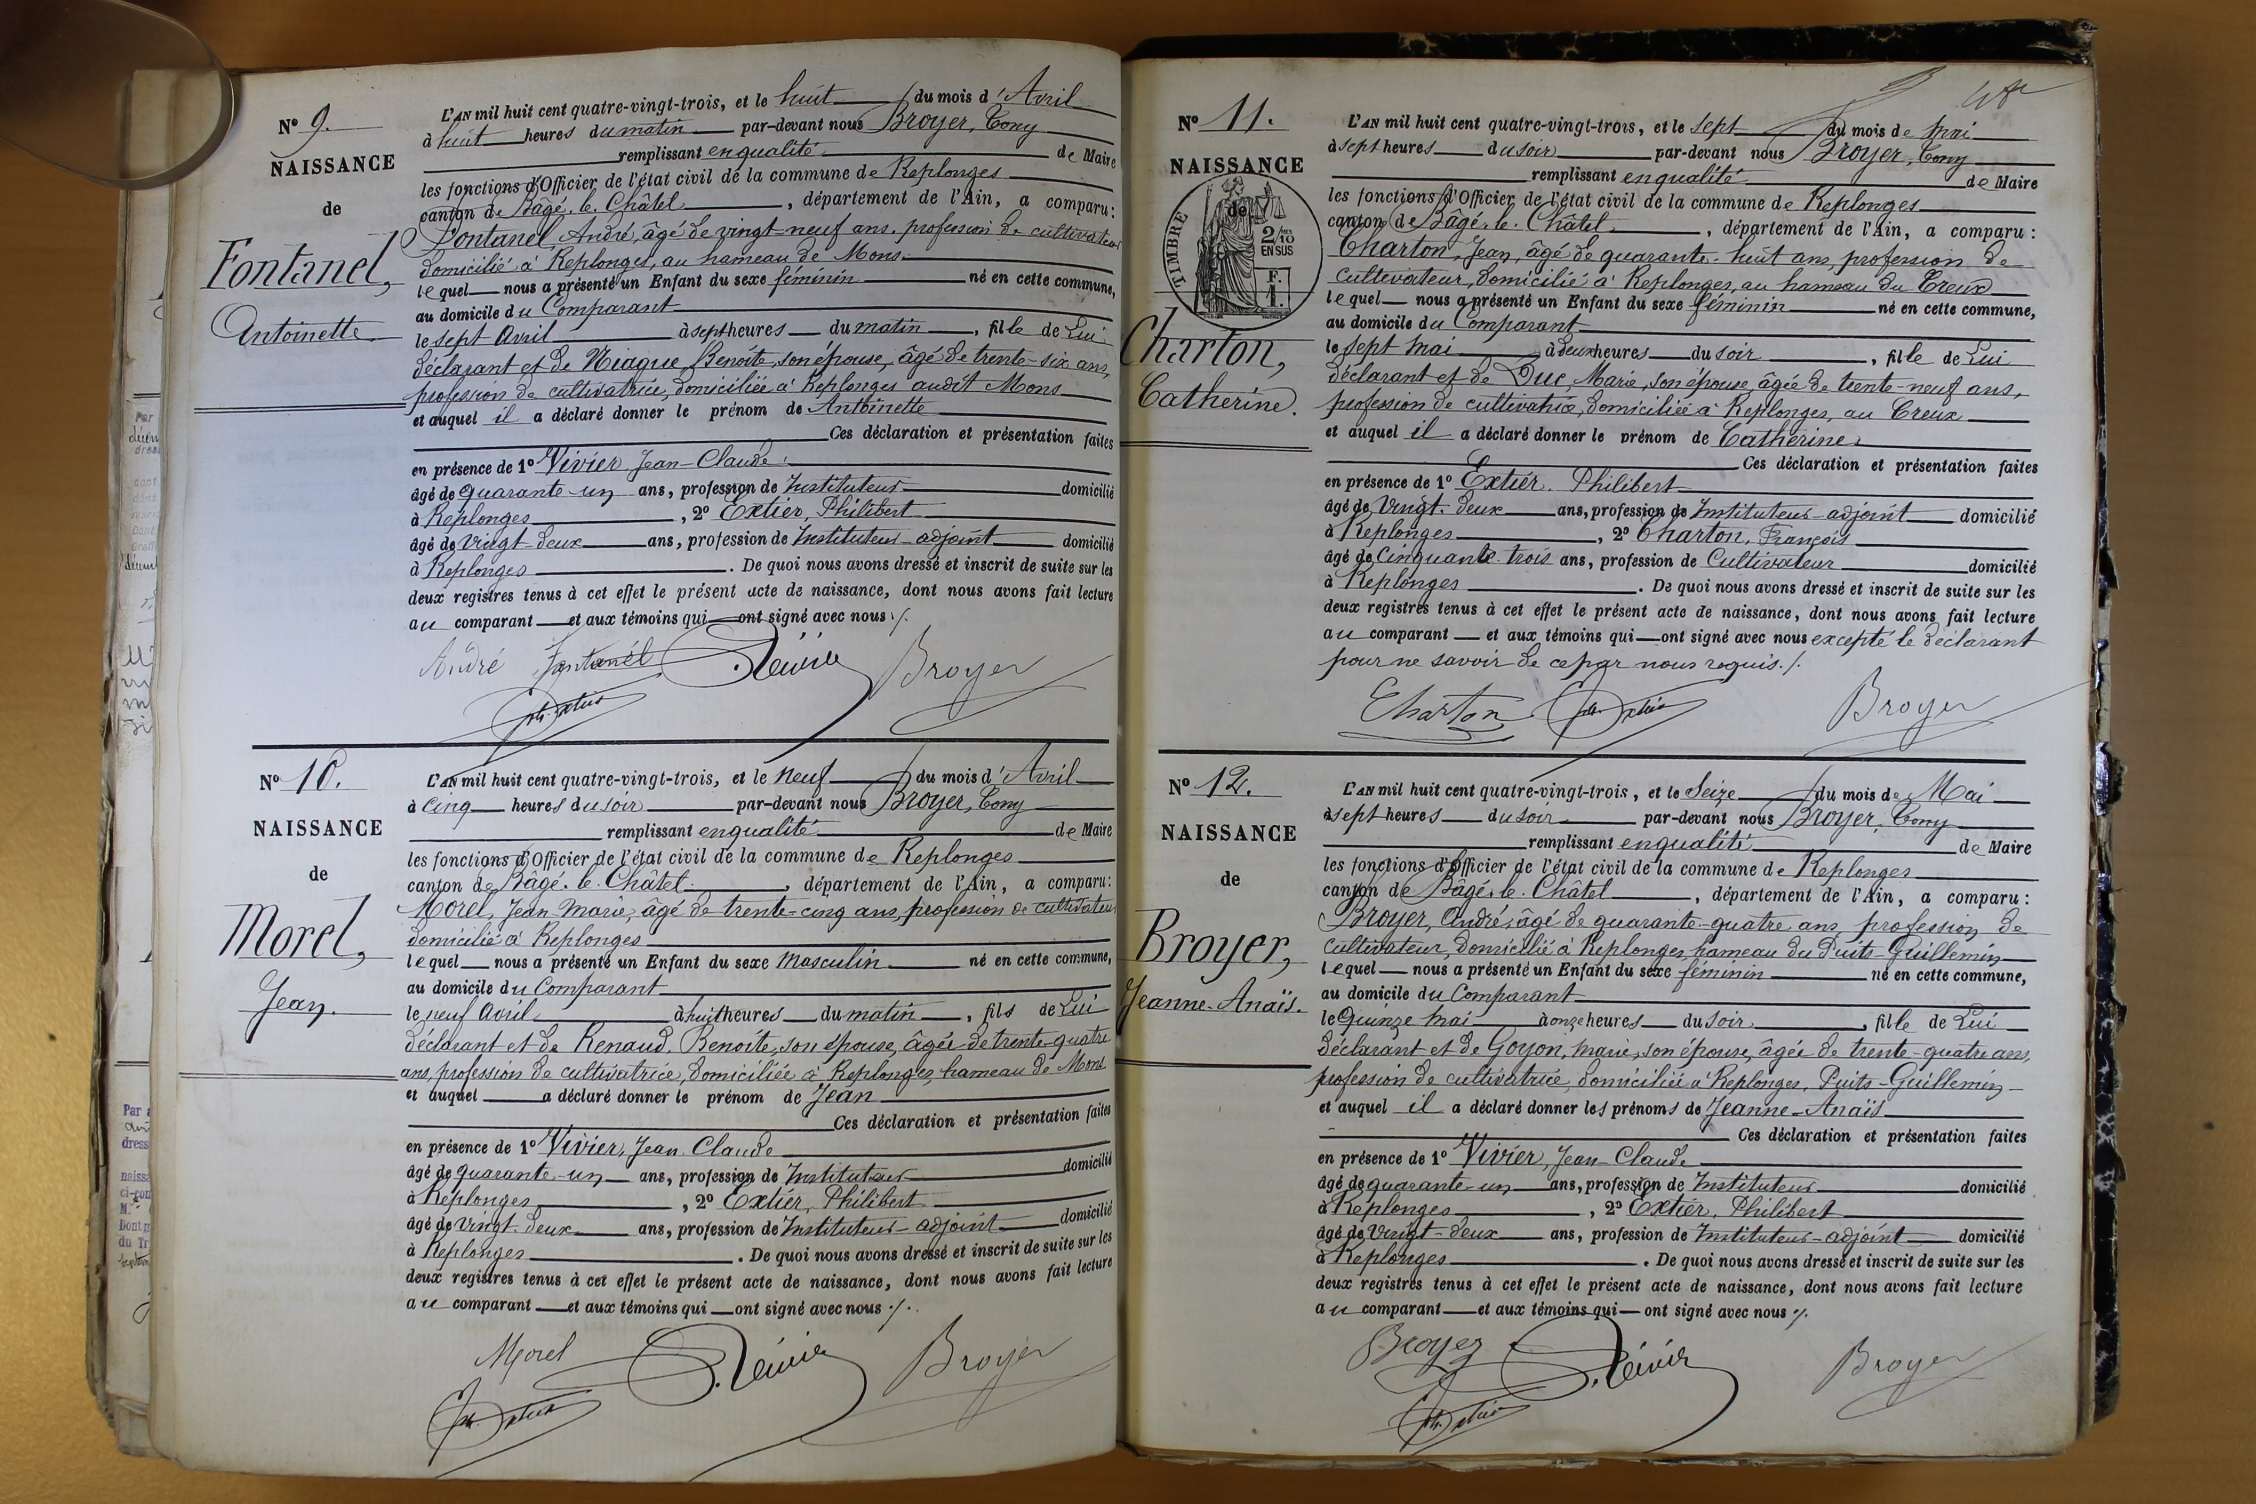 Nº 9.
NAISSANCE
de
Fontanel,
Antoinette.
L'AN mil huit cent quatre-vingt-trois, et le huit du mois d'Avril
à huit heures du matin par-devant nous Broyer, Tony
remplissant en qualité de Maire
les fonctions d'Officier de l'état civil de la commune de Replonges
canton de Bâgé-le-Châtel, département de l'Ain, a comparu:
Fontanel, André, âgé de vingt-neuf ans, profession de cultivateur
domicilié à Replonges, au hameau de Mons.
lequel nous a présenté un Enfant du sexe féminin né en cette commune,
au domicile du Comparant
le sept Avril à sept heures du matin, fille de Lui
déclarant et de Niague, Benoîte, son épouse, âgé de trente-six ans,
profession de cultivatrice, domiciliée à Replonges audit Mons
et auquel il a déclaré donner le prénom de Antoinette
Ces déclaration et présentation faites
en présence de 1º Vivier, Jean-Claude
âgé de quarante-un ans, profession de Instituteur domicilié
à Replonges, 2º Extier, Philibert
âgé de vingt-deux ans, profession de Instituteur-adjoint domicilié
à Replonges. De quoi nous avons dressé et inscrit de suite sur les
deux registres tenus à cet effet le présent acte de naissance, dont nous avons fait lecture
au comparant et aux témoins qui ont signé avec nous ./.
André Fontanel Vivier Broyer
Ph. Extier
Nº 10.
NAISSANCE
de
Morel,
Jean.
L'AN mil huit cent quatre-vingt-trois, et le neuf du mois d'Avril
à cinq heures du soir par-devant nous Broyer, Tony
remplissant en qualité de Maire
les fonctions d'Officier de l'état civil de la commune de Replonges
canton de Bâgé-le-Châtel, département de l'Ain, a comparu:
Morel, Jean Marie, âgé de trente-cinq ans, profession de cultivateur
domicilié à Replonges
lequel nous a présenté un Enfant du sexe masculin né en cette commune,
au domicile du Comparant
le neuf Avril à huit heures du matin, fils de Lui
déclarant et de Renaud, Benoîte, son épouse, âgée de trente-quatre
ans, profession de cultivatrice, domiciliée à Replonges, hameau de Mons.
et auquel a déclaré donner le prénom de Jean
Ces déclaration et présentation faites
en présence de 1º Vivier, Jean Claude
âgé de quarante-un ans, profession de Instituteur domicilié
à Replonges, 2º Extier, Philibert
âgé de vingt-deux ans, profession de Instituteur-adjoint domicilié
à Replonges. De quoi nous avons dressé et inscrit de suite sur les
deux registres tenus à cet effet le présent acte de naissance, dont nous avons fait lecture
au comparant et aux témoins qui ont signé avec nous ./.
Morel Vivier Broyer
Ph. Extier
Nº 11.
NAISSANCE
de
TIMBRE
2/10
EN SUS
F.
1.
Charton,
Catherine.
L'AN mil huit cent quatre-vingt-trois, et le sept du mois de Mai
à sept heures du soir par-devant nous Broyer, Tony
remplissant en qualité de Maire
les fonctions d'Officier de l'état civil de la commune de Replonges
canton de Bâgé-le-Châtel, département de l'Ain, a comparu:
Charton, Jean, âgé de quarante-huit ans, profession de
cultivateur, domicilié à Replonges, au hameau du Creux
lequel nous a présenté un Enfant du sexe féminin né en cette commune,
au domicile du Comparant
le sept mai à deux heures du soir, fille de Lui
déclarant et de Duc, Marie, son épouse, âgée de trente-neuf ans,
profession de cultivatrice, domiciliée à Replonges, au Creux
et auquel il a déclaré donner le prénom de Catherine
Ces déclaration et présentation faites
en présence de 1º Extier, Philibert
âgé de vingt-deux ans, profession de Instituteur-adjoint domicilié
à Replonges, 2º Charton, François
âgé de cinquante-trois ans, profession de Cultivateur domicilié
à Replonges. De quoi nous avons dressé et inscrit de suite sur les
deux registres tenus à cet effet le présent acte de naissance, dont nous avons fait lecture
au comparant et aux témoins qui ont signé avec nous excepté le déclarant
pour ne savoir de ce par nous requis ./.
Charton Ph. Extier Broyer
Nº 12.
NAISSANCE
de
Broyer,
Jeanne-Anaïs.
L'AN mil huit cent quatre-vingt-trois, et le Seize du mois de Mai
à sept heures du soir par-devant nous Broyer, Tony
remplissant en qualité de Maire
les fonctions d'Officier de l'état civil de la commune de Replonges
canton de Bâgé-le-Châtel, département de l'Ain, a comparu:
Broyer, André, âgé de quarante-quatre ans, profession de
cultivateur, domicilié à Replonges, hameau du Puits-Guillemin
lequel nous a présenté un Enfant du sexe féminin né en cette commune,
au domicile du Comparant
le Quinze mai à onze heures du soir, fille de Lui
déclarant et de Goyon, Marie, son épouse, âgée de trente-quatre ans,
profession de cultivatrice, domiciliée à Replonges, Puits-Guillemin
et auquel il a déclaré donner les prénoms de Jeanne-Anaïs
Ces déclaration et présentation faites
en présence de 1º Vivier, Jean-Claude
âgé de quarante-un ans, profession de Instituteur domicilié
à Replonges, 2º Extier, Philibert
âgé de vingt-deux ans, profession de Instituteur-adjoint domicilié
à Replonges. De quoi nous avons dressé et inscrit de suite sur les
deux registres tenus à cet effet le présent acte de naissance, dont nous avons fait lecture
au comparant et aux témoins qui ont signé avec nous ./.
Broyer Vivier Broyer
Ph. Extier